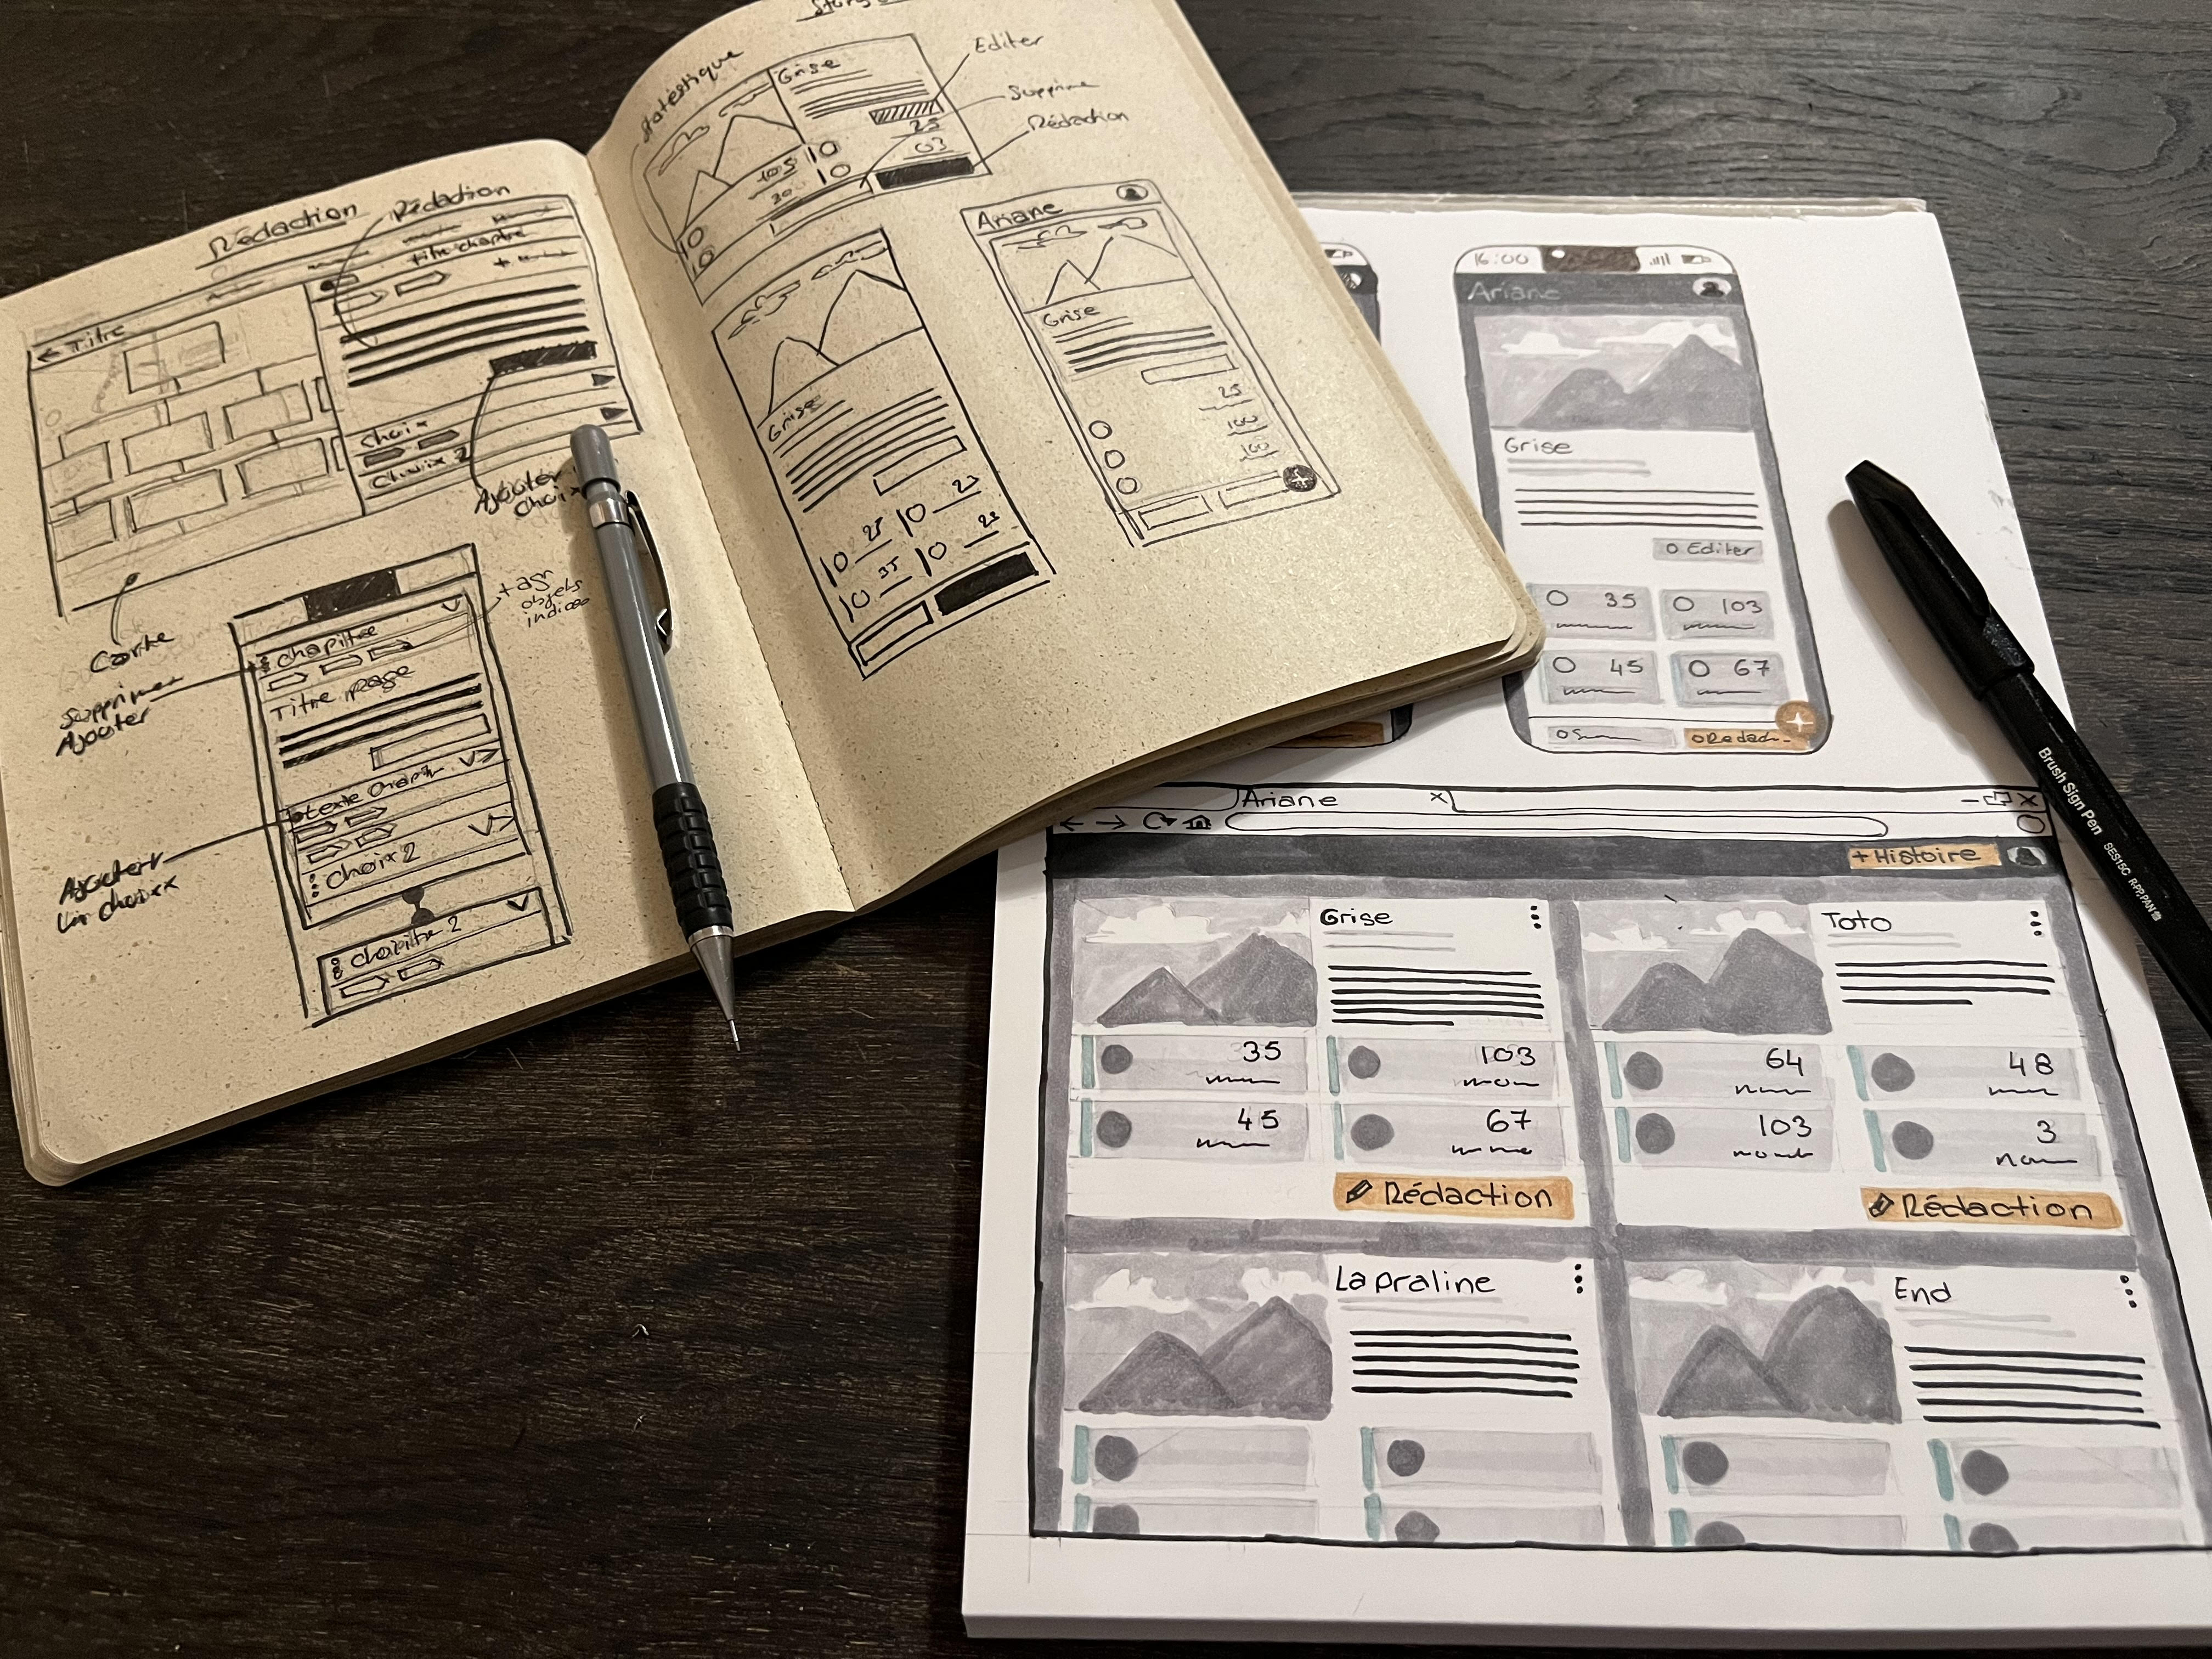 Rédaction
Rédaction
Titre chapitre
← Titre
choix
choix 2
Ajouter
choix
Carte
Supprimer
Ajouter
chapitre
Titre page
texte chapitre
choix 2
Ajouter
un choix
chapitre 2
objets
indices
statistique
Grise
Editer
Supprime
Rédaction
25
03
105
30
Grise
25
23
35
23
Ariane
Grise
25
100
100
16:00
Ariane
Grise
Editer
35
103
45
67
Ariane
+ Histoire
Grise
35
103
45
67
Rédaction
Toto
64
48
103
3
Rédaction
La praline
End
Brush Sign Pen
SES15C